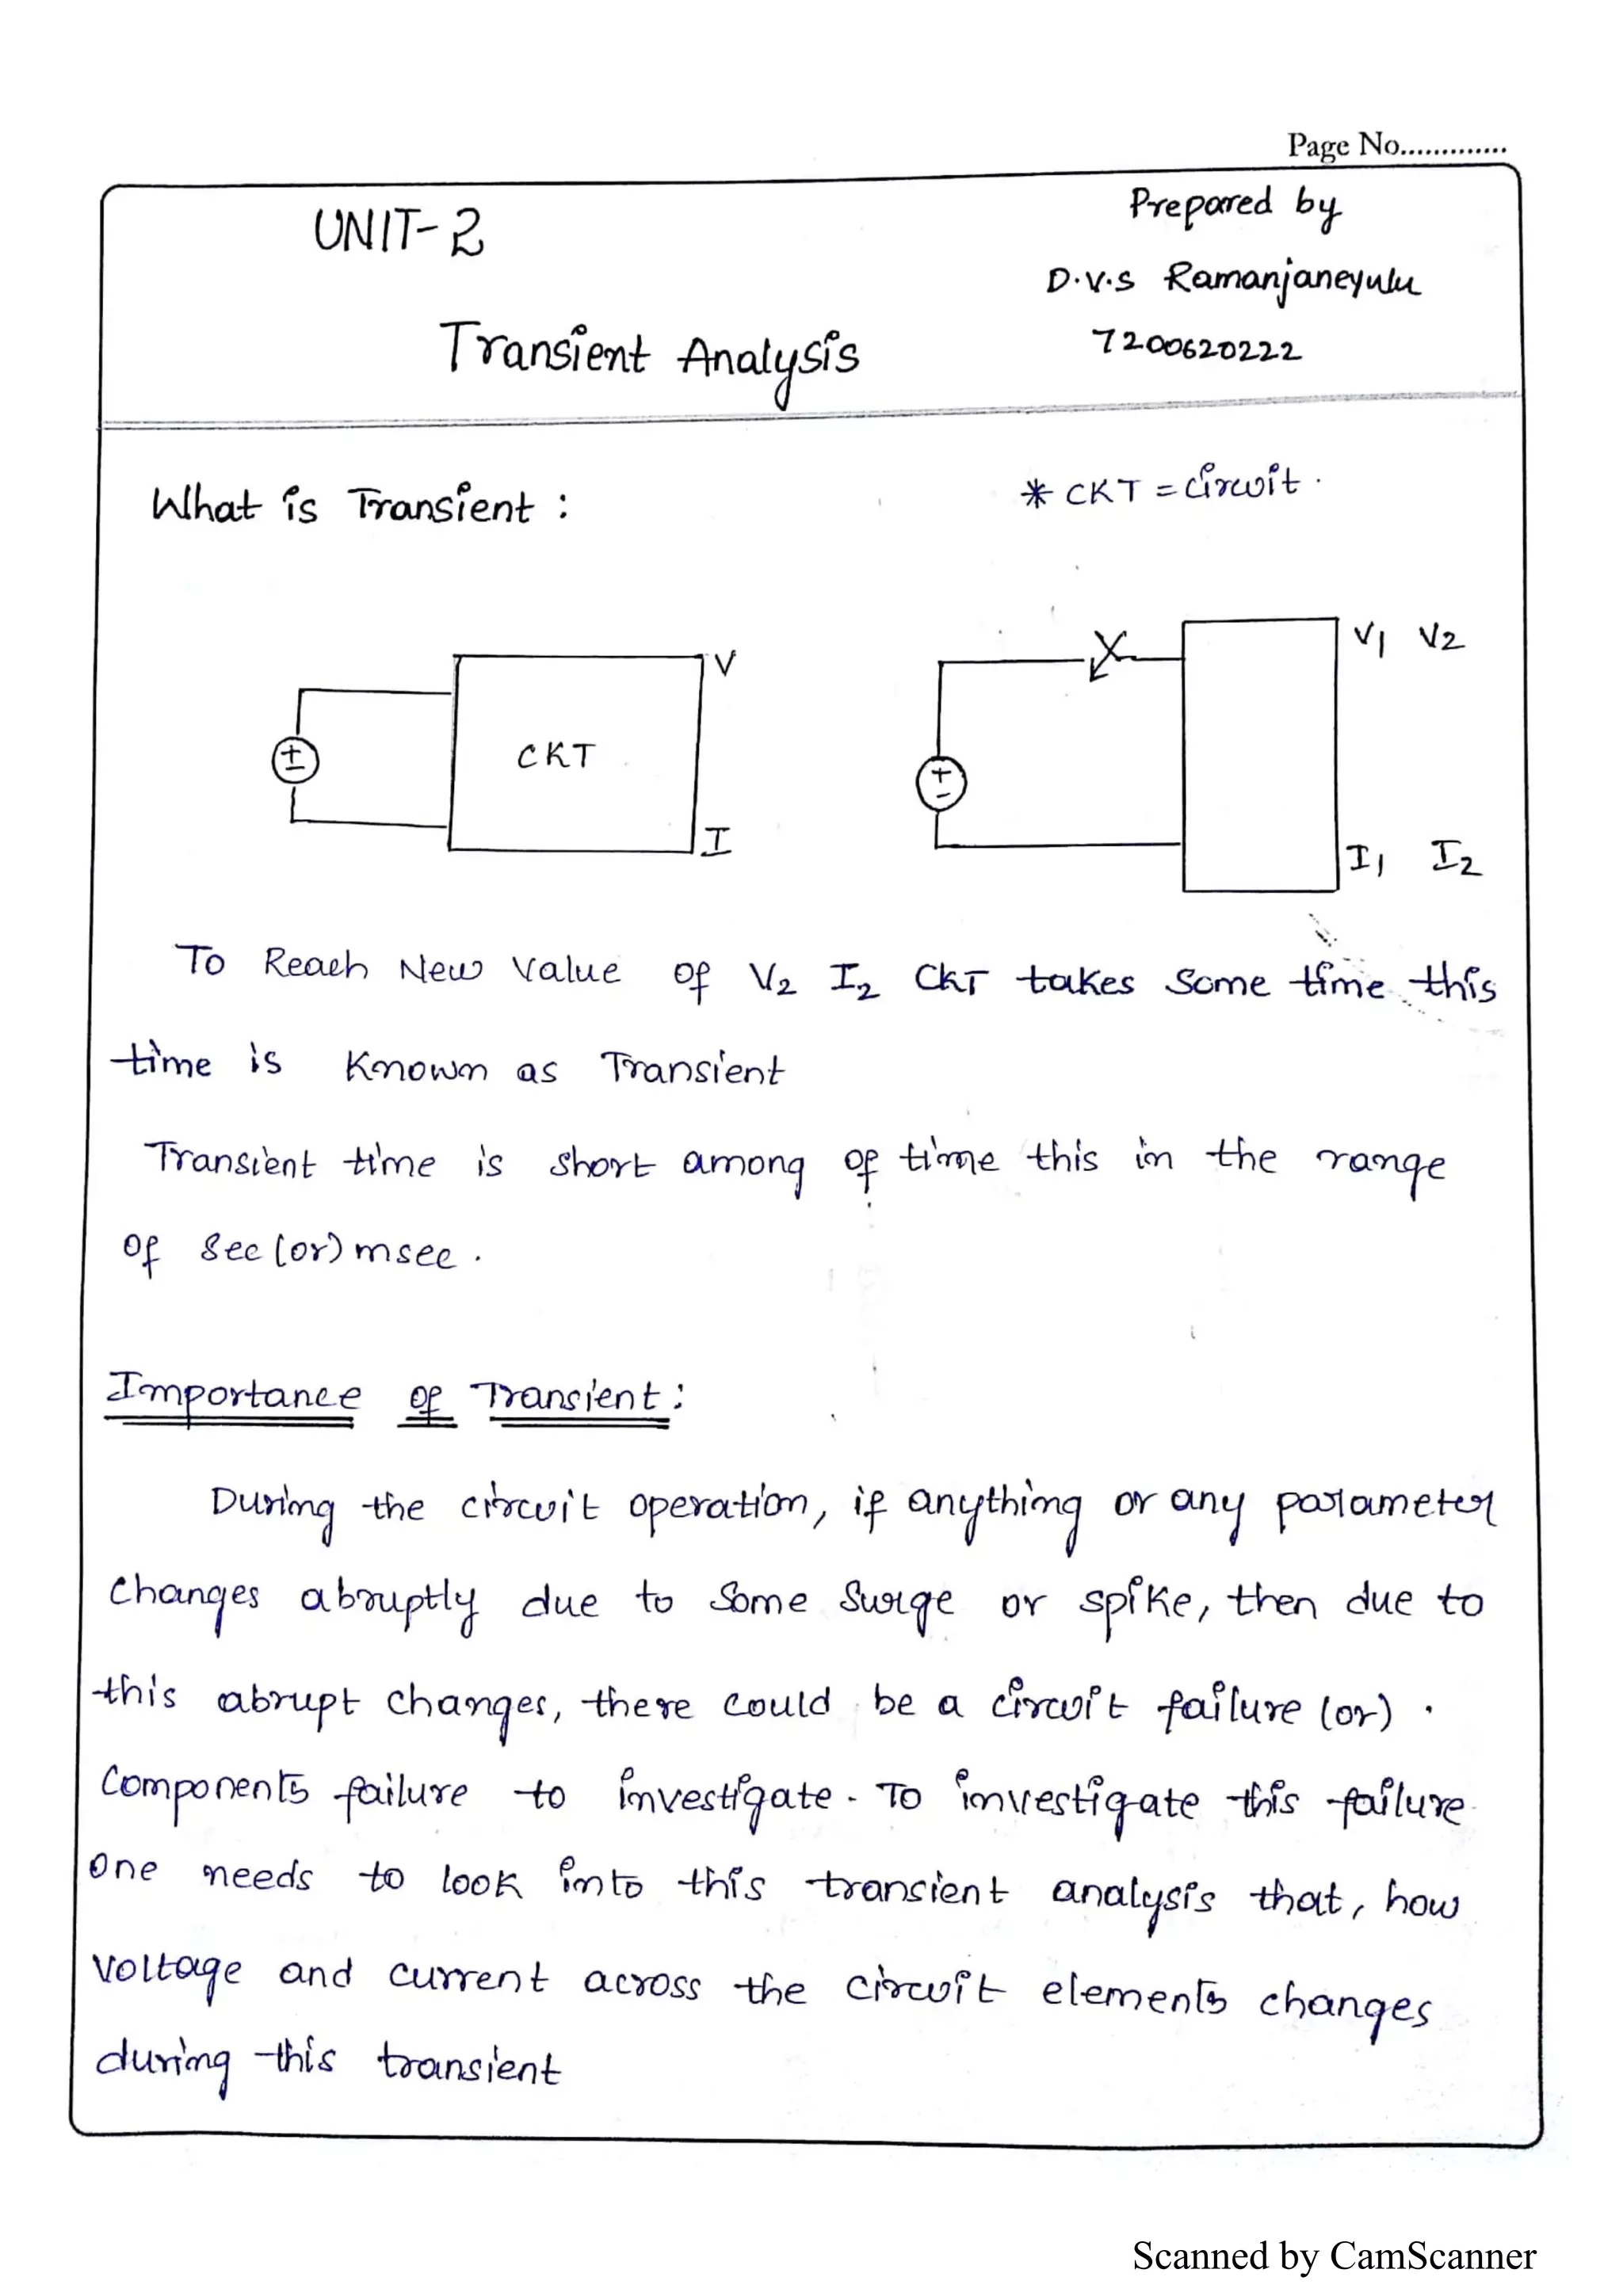 Page No.............
UNIT-2
Prepared by
D.V.S Ramanjaneyulu
7200620222
Transient Analysis
What is Transient :
* CKT = circuit .
V
CKT
I
V1 V2
I1 I2
To Reach New value of V2 I2 CKT takes some time this
time is Known as Transient
Transient time is short among of time this in the range
of sec (or) msec .
Importance of Transient :
During the circuit operation, if anything or any parameter
changes abruptly due to some surge or spike, then due to
this abrupt changes, there could be a circuit failure (or) .
components failure to investigate . To investigate this failure
one needs to look into this transient analysis that, how
voltage and current across the circuit elements changes
during this transient
Scanned by CamScanner